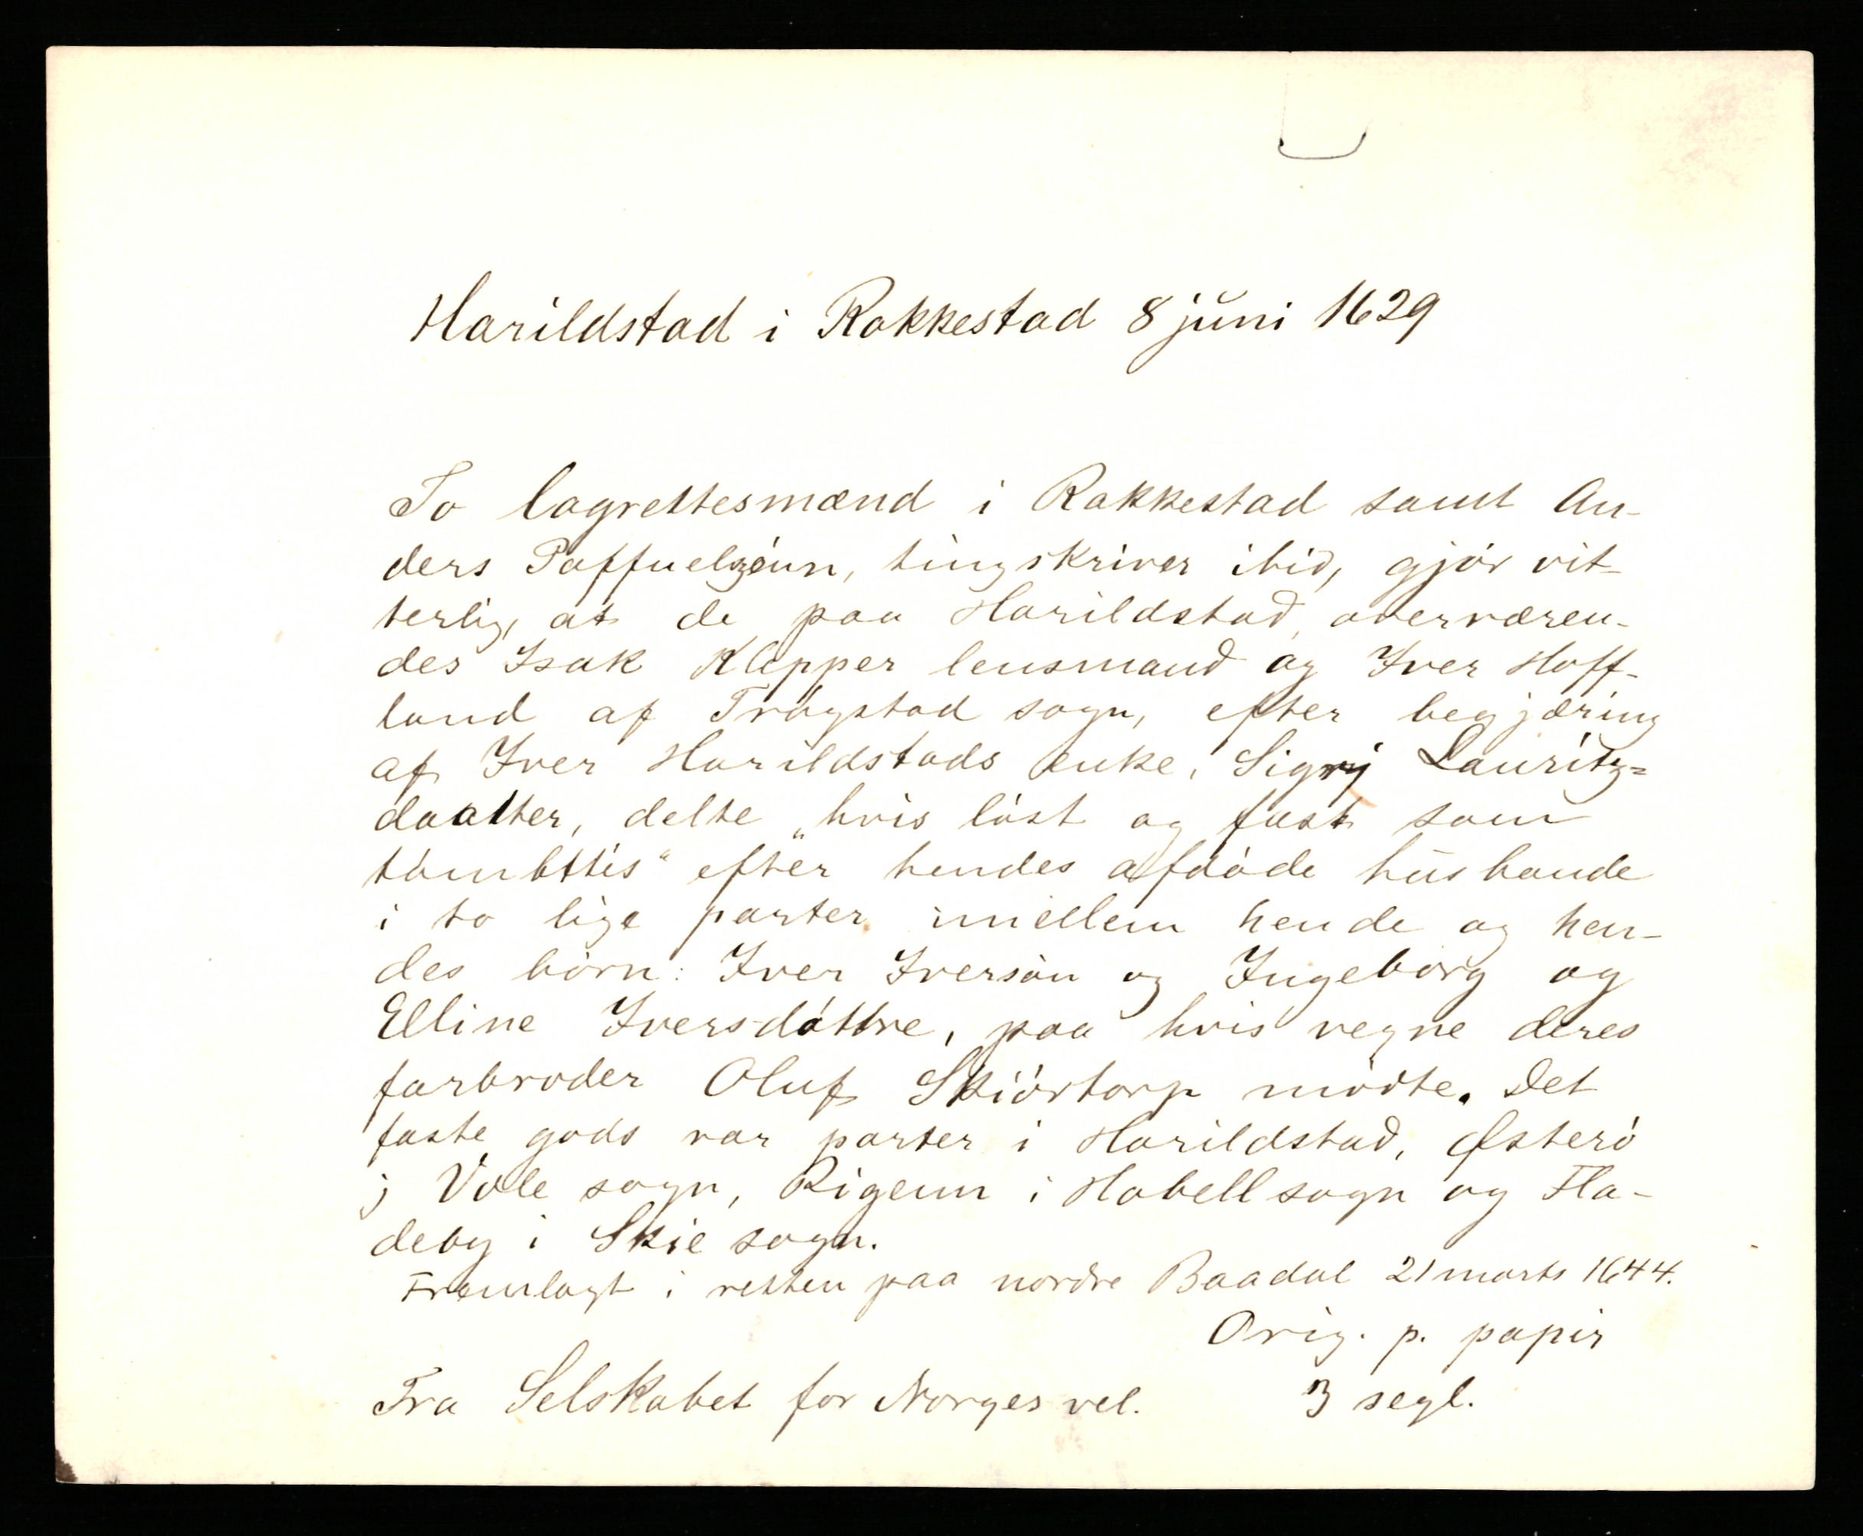 Harildstad i Rakkestad 8 juni 1629
To lagrettesmænd i Rakkestad samt An-
ders Paffuelzönn, tingskriver ibid, gjör vit-
terlig, at de paa Harildstad, overværen-
des Isak Klepper lensmand og Iver Hoff-
land af Trögstad sogn, efter begjæring
af Iver Harildstads enke, Sigrj Lauritz=
daatter, delte „hvis löst og fast som
tömbttis“ efter hendes afdöde husbonde
i to lige parter imellem hende og hen-
des börn: Iver Iversön og Ingeborg og
Elline Iversdöttre, paa hvis vegne deres
farbroder Oluf Skiörtorp mödte. Det
faste gods var parter i Harildstad, Østerö
j Vole sogn, Rigenn i Hobell sogn og Fla-
deby i Skie sogn.
Fremlagt i retten paa nordre Baadal 21 marts 1644.
Orig. p. papir
Fra Selskabet for Norges vel. 3 segl.